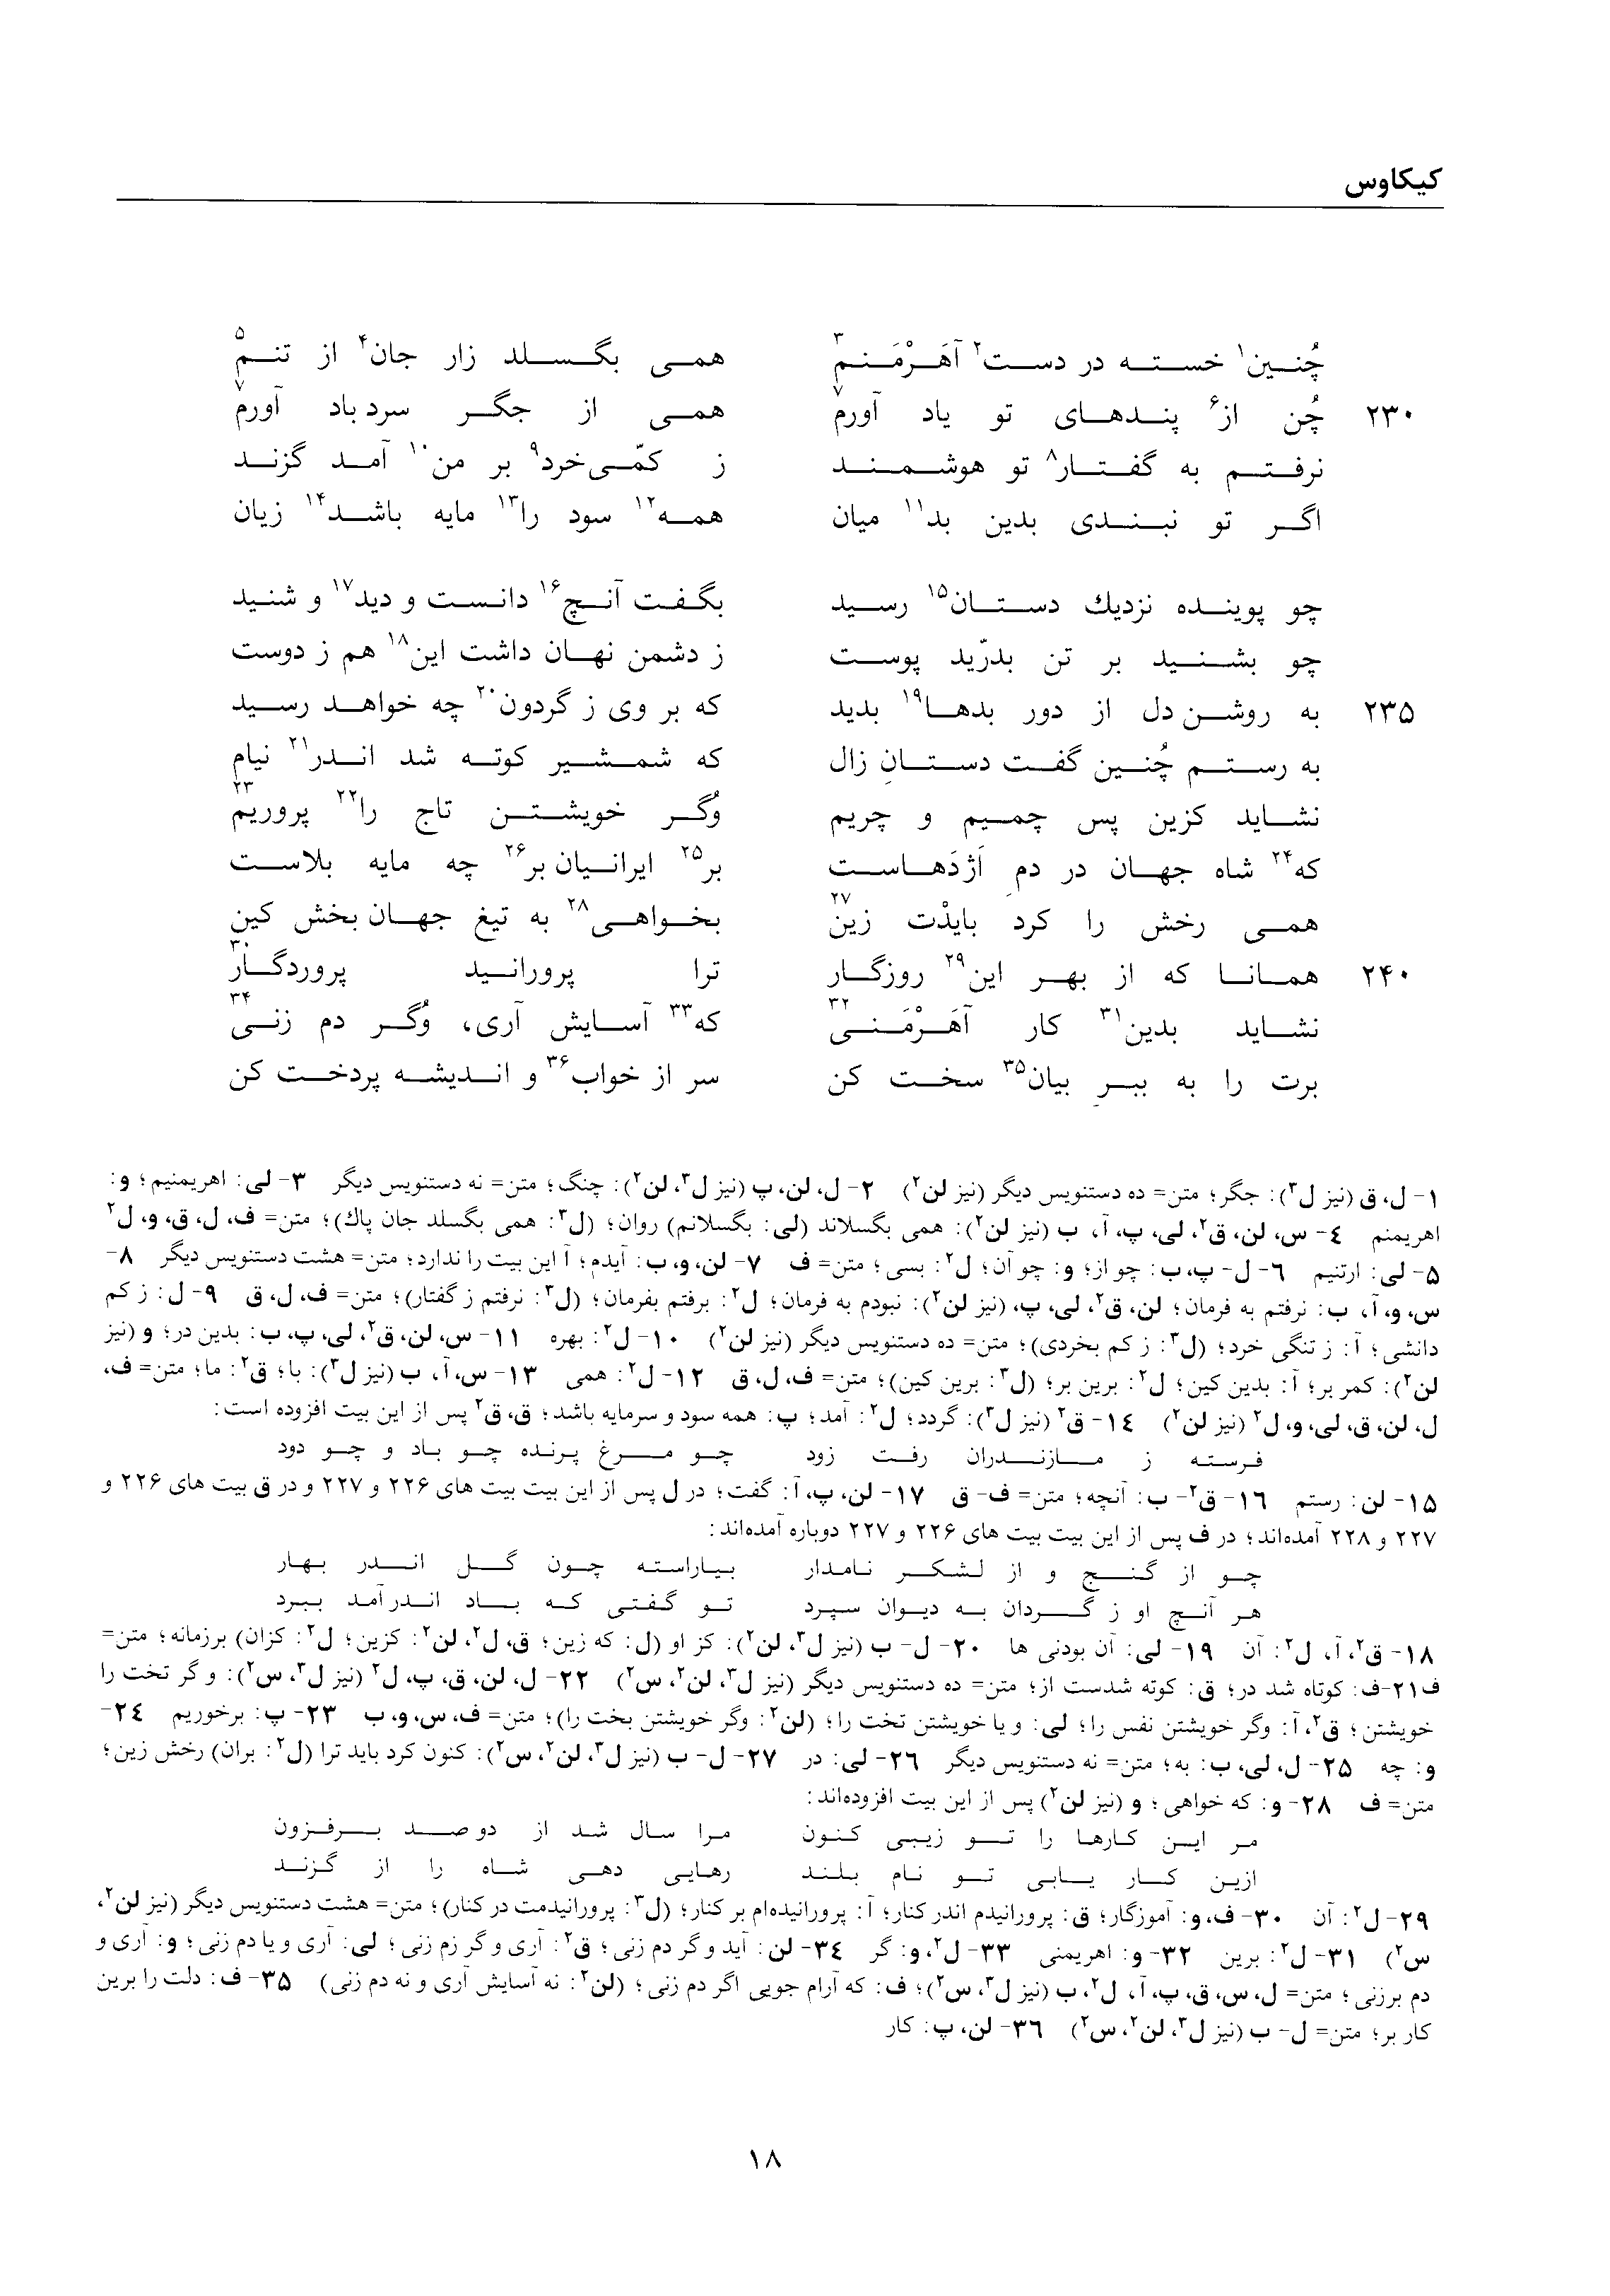 کیکاوس
چُنین۱ خسته در دست۲ آهَرْمَنم۳ همی بگسلد زار جان۴ از تنم۵
۲۳۰ چُن از۶ پندهای تو یاد آورم۷ همی از جگر سرد باد آورم۷
نرفتم به گفتار۸ تو هوشمند ز کمّی‌خرد۹ بر من۱۰ آمد گزند
اگر تو نبندی بدین بد۱۱ میان همه۱۲ سود را۱۳ مایه باشد۱۴ زیان
چو پوینده نزدیك دستان۱۵ رسید بگفت آنچ۱۶ دانست و دید۱۷ و شنید
چو بشنید بر تن بدرّید پوست ز دشمن نهان داشت این۱۸ هم ز دوست
۲۳۵ به روشن‌دل از دور بدها۱۹ بدید که بر وی ز گردون۲۰ چه خواهد رسید
به رستم چُنین گفت دستانِ زال که شمشیر کوته شد اندر۲۱ نیام
نشاید کزین پس چمیم و چریم وُگر خویشتن تاج را۲۲ پروریم۲۳
که۲۴ شاه جهان در دمِ اَژدَهاست بر۲۵ ایرانیان بر۲۶ چه مایه بلاست
همی رخش را کرد بایدْت زین۲۷ بخواهی۲۸ به تیغ جهان‌بخش کین
۲۴۰ همانا که از بهر این۲۹ روزگار ترا پرورانید پروردگار۳۰
نشاید بدین۳۱ کار آهَرْمَنی۳۲ که۳۳ آسایش آری، وُگر دم زنی۳۴
برت را به ببرِ بیان۳۵ سخت کن سر از خواب۳۶ و اندیشه پردخت کن
۱- ل، ق (نیز ل۳): جگر؛ متن= ده دستنویس دیگر (نیز لن۲) ۲- ل، لن، پ (نیز ل۳، لن۲): چنگ؛ متن= نه دستنویس دیگر ۳- لی: اهریمنیم؛ و:
اهریمنم ٤- س، لن، ق۲، لی، پ، آ، ب (نیز لن۲): همی بگسلاند (لی: بگسلانم) روان؛ (ل۳: همی بگسلد جان پاك)؛ متن= ف، ل، ق، و، ل۲
۵- لی: ارتنیم ٦- ل- پ، ب: چو از؛ و: چو آن؛ ل۲: بسی؛ متن= ف ۷- لن، و، ب: آیدم؛ آ این بیت را ندارد؛ متن= هشت دستنویس دیگر ۸-
س، و، آ، ب: نرفتم به فرمان؛ لن، ق۲، لی، پ، (نیز لن۲): نبودم به فرمان؛ ل۲: برفتم بفرمان؛ (ل۳: نرفتم ز گفتار)؛ متن= ف، ل، ق ۹- ل: ز کم
دانشی؛ آ: ز تنگی خرد؛ (ل۳: ز کم بخردی)؛ متن= ده دستنویس دیگر (نیز لن۲) ۱۰- ل۲: بهره ۱۱- س، لن، ق۲، لی، پ، ب: بدین در؛ و (نیز
لن۲): کمر بر؛ آ: بدین کین؛ ل۲: برین بر؛ (ل۳: برین کین)؛ متن= ف، ل، ق ۱۲- ل۲: همی ۱۳- س، آ، ب (نیز ل۳): با؛ ق۲: ما؛ متن= ف،
ل، لن، ق، لی، و، ل۲ (نیز لن۲) ۱٤- ق۲ (نیز ل۳): گردد؛ ل۲: آمد؛ پ: همه سود و سرمایه باشد؛ ق، ق۲ پس از این بیت افزوده است:
فرسته ز مازندران رفت زود چو مرغ پرنده چو باد و چو دود
۱۵- لن: رستم ۱٦- ق۲- ب: آنچه؛ متن= ف- ق ۱۷- لن، پ، آ: گفت؛ در ل پس از این بیت بیت های ۲۲٦ و ۲۲۷ و در ق بیت های ۲۲٦ و
۲۲۷ و ۲۲۸ آمده‌اند؛ در ف پس از این بیت بیت های ۲۲٦ و ۲۲۷ دوباره آمده‌اند:
چو از گنج و از لشکر نامدار بیاراسته چون گل اندر بهار
هر آنچ او ز گردان به دیوان سپرد تو گفتی که باد اندرآمد ببرد
۱۸- ق۲، آ، ل۲: آن ۱۹- لی: آن بودنی ها ۲۰- ل- ب (نیز ل۳، لن۲): کز او (ل: که زین؛ ق، ل۲، لن۲: کزین؛ ل۲: کزان) برزمانه؛ متن=
ف۲۱-ف: کوتاه شد در؛ ق: کوته شدست از؛ متن= ده دستنویس دیگر (نیز ل۳، لن۲، س۲) ۲۲- ل، لن، ق، پ، ل۲ (نیز ل۳، س۲): و گر تخت را
خویشتن؛ ق۲، آ: وگر خویشتن نفس را؛ لی: و یا خویشتن تخت را؛ (لن۲: وگر خویشتن بخت را)؛ متن= ف، س، و، ب ۲۳- پ: برخوریم ۲٤-
و: چه ۲۵- ل، لی، ب: به؛ متن= نه دستنویس دیگر ۲٦- لی: در ۲۷- ل- ب (نیز ل۳، لن۲، س۲): کنون کرد باید ترا (ل۲: بران) رخش زین؛
متن= ف ۲۸- و: که خواهی؛ و (نیز لن۲) پس از این بیت افزوده‌اند:
مر این کارها را تو زیبی کنون مرا سال شد از دو صد برفزون
ازین کار یابی تو نام بلند رهایی دهی شاه را از گزند
۲۹- ل۲: آن ۳۰- ف، و: آموزگار؛ ق: پرورانیدم اندر کنار؛ آ: پرورانیده‌ام بر کنار؛ (ل۳: پرورانیدمت در کنار)؛ متن= هشت دستنویس دیگر (نیز لن۲،
س۲) ۳۱- ل۲: برین ۳۲- و: اهریمنی ۳۳- ل۲، و: گر ۳٤- لن: آید و گر دم زنی؛ ق۲: آری و گر زم زنی؛ لی: آری و یا دم زنی؛ و: آری و
دم برزنی؛ متن= ل، س، ق، پ، آ، ل۲، ب (نیز ل۳، س۲)؛ ف: که آرام جویی اگر دم زنی؛ (لن۲: نه آسایش آری و نه دم زنی) ۳۵- ف: دلت را برین
کار بر؛ متن= ل- ب (نیز ل۳، لن۲، س۲) ۳٦- لن، پ: کار
۱۸